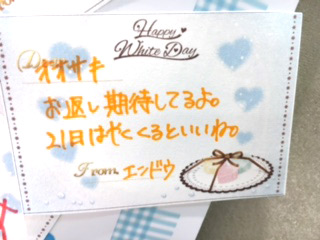 Happy
White Day
オオサキ
お返し期待してるよ。
21日はやくくるといいね。
From. エンドウ